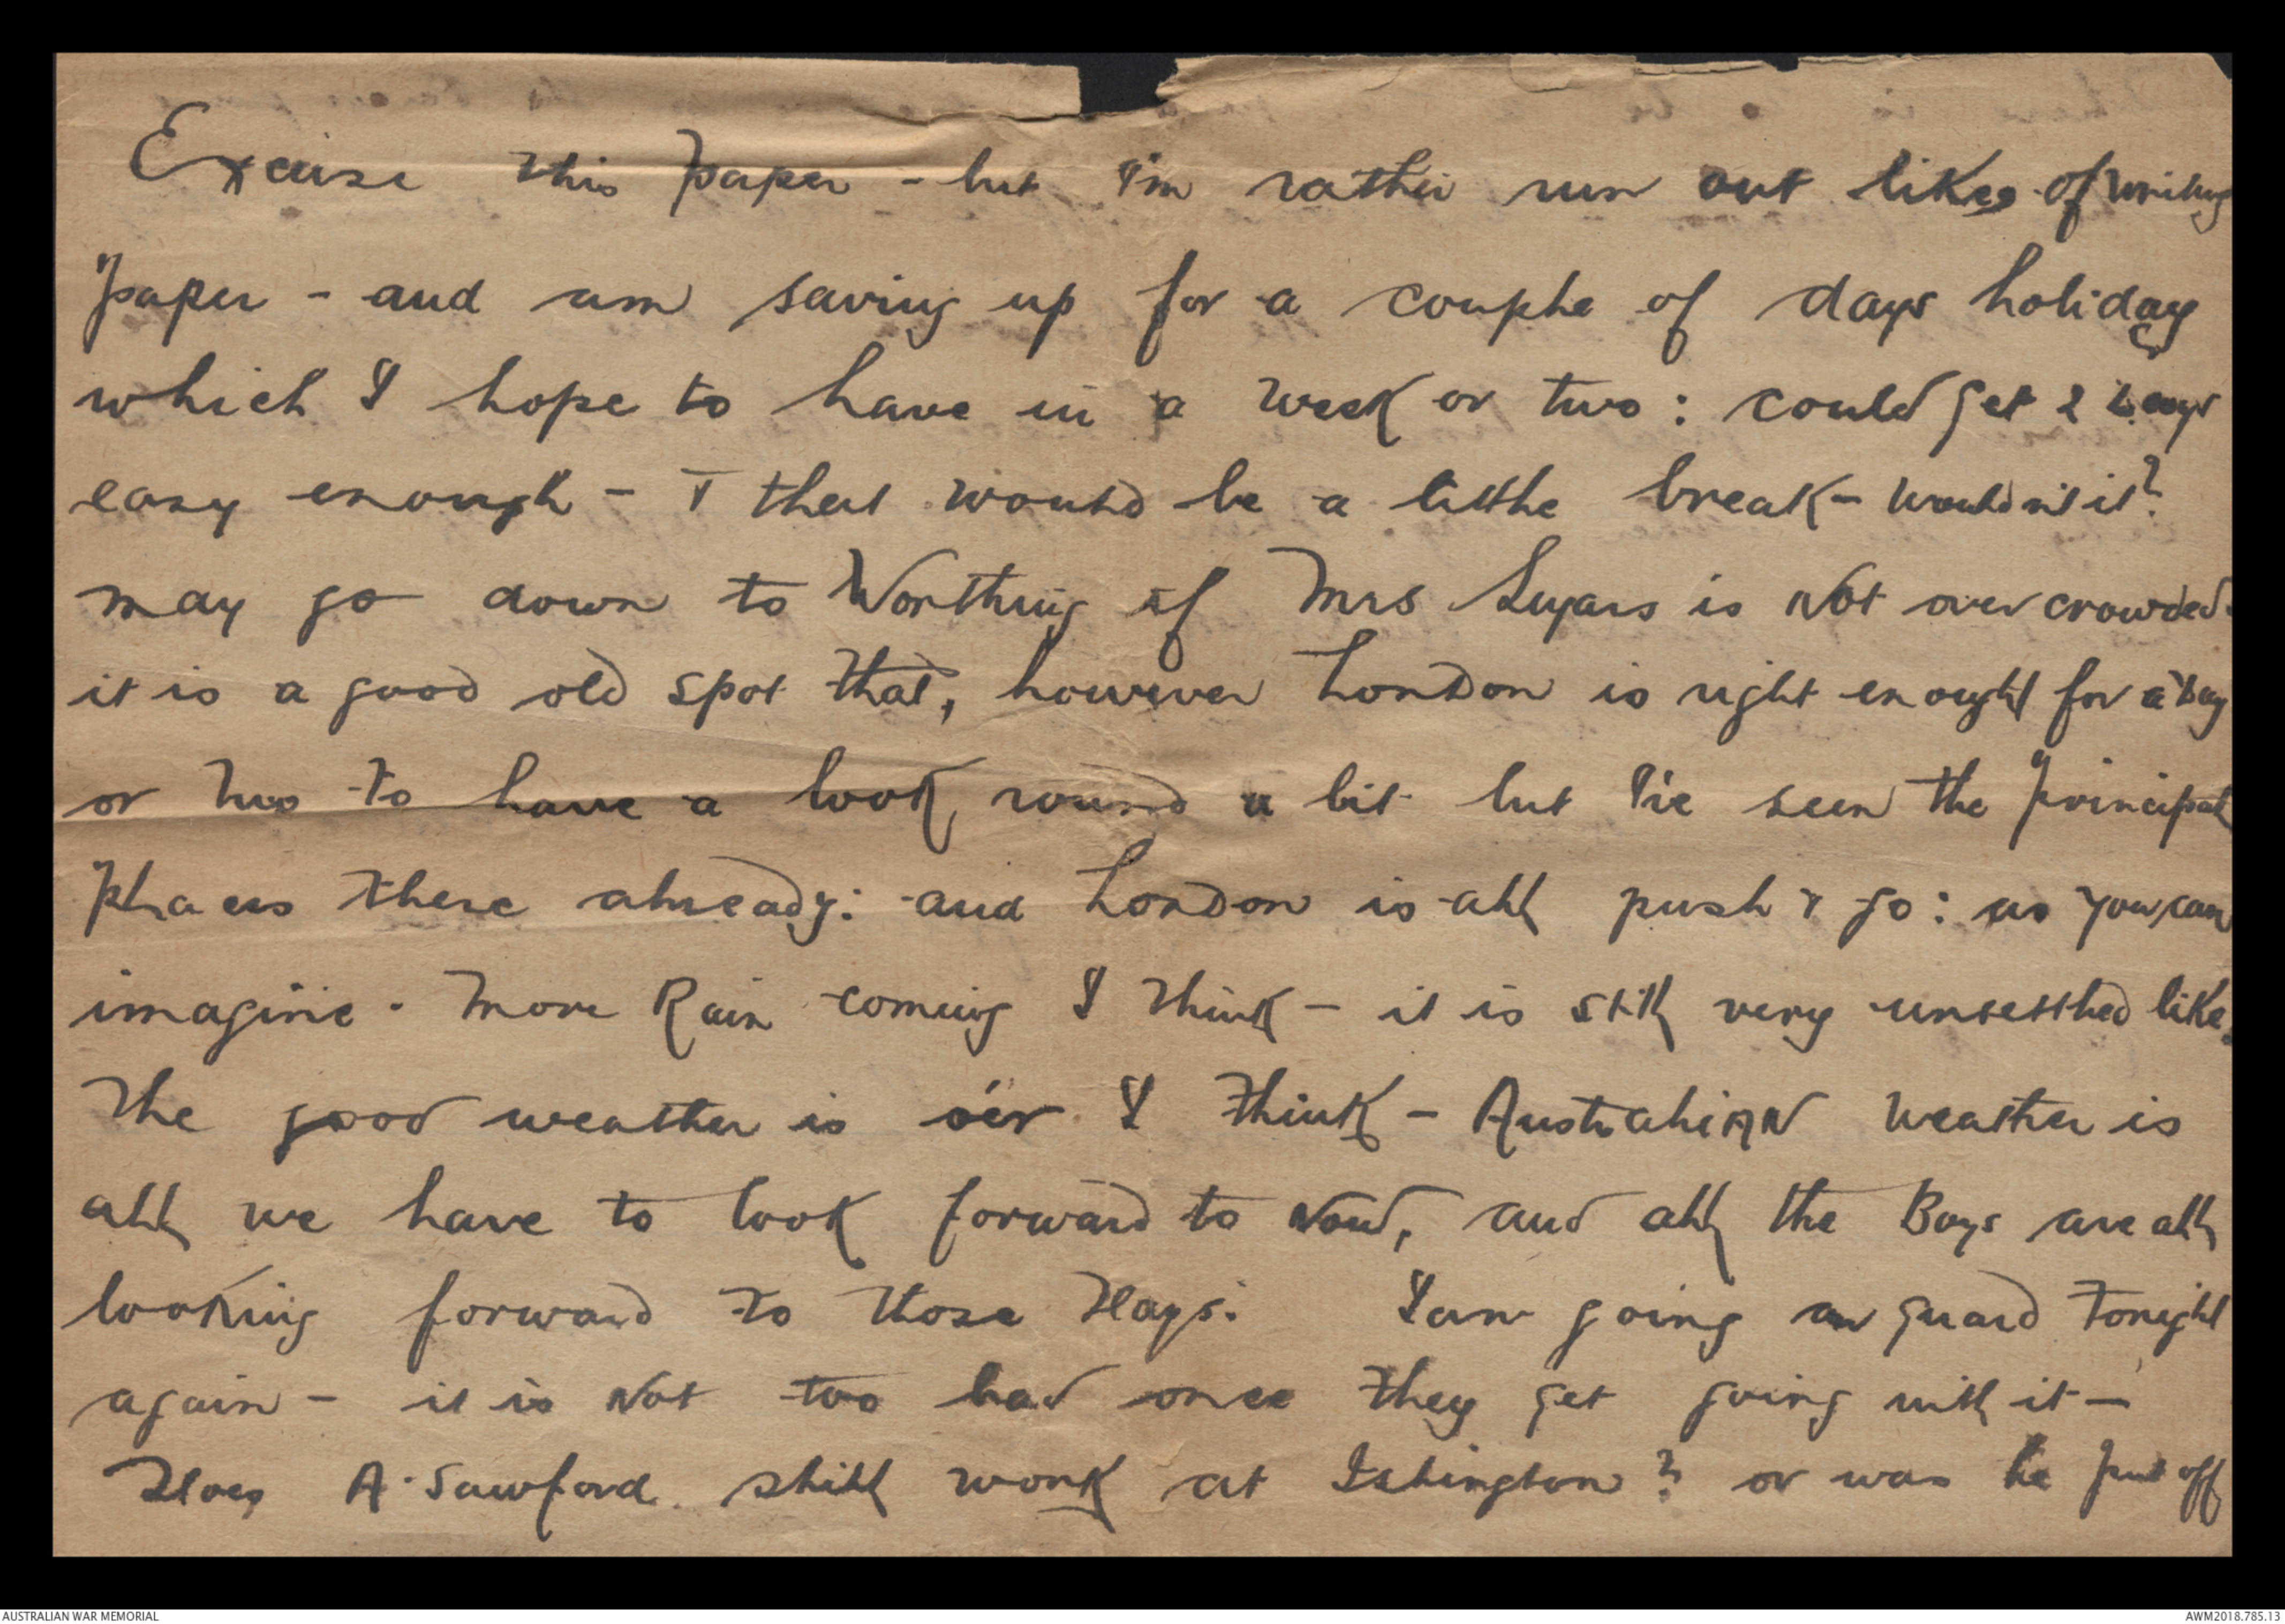 Excuse this paper - but I'm rather run out like of writing
paper - and am saving up for a couple of days holiday
which I hope to have in a week or two: could get 2 days
easy enough - & that would be a little break - wouldn't it?
may go down to Worthing if Mrs is Not over crowded.
it is a good old spot that, however London is right enough for a day
or two to have a look round a bit but I've seen the principal
places there already: and London is all push & go: as you can
imagine. More Rain coming I think - it is still very unsettled like.
The good weather is o'er I think - AustraliAN Weather is
all we have to look forward to Now, and all the Boys are all
looking forward to those Days: I am going on guard tonight
again - it is Not too bad once they get going with it -
Does A. Sawford still work at Islington? or was he put off
AUSTRALIAN WAR MEMORIAL
AWM2018.785.13